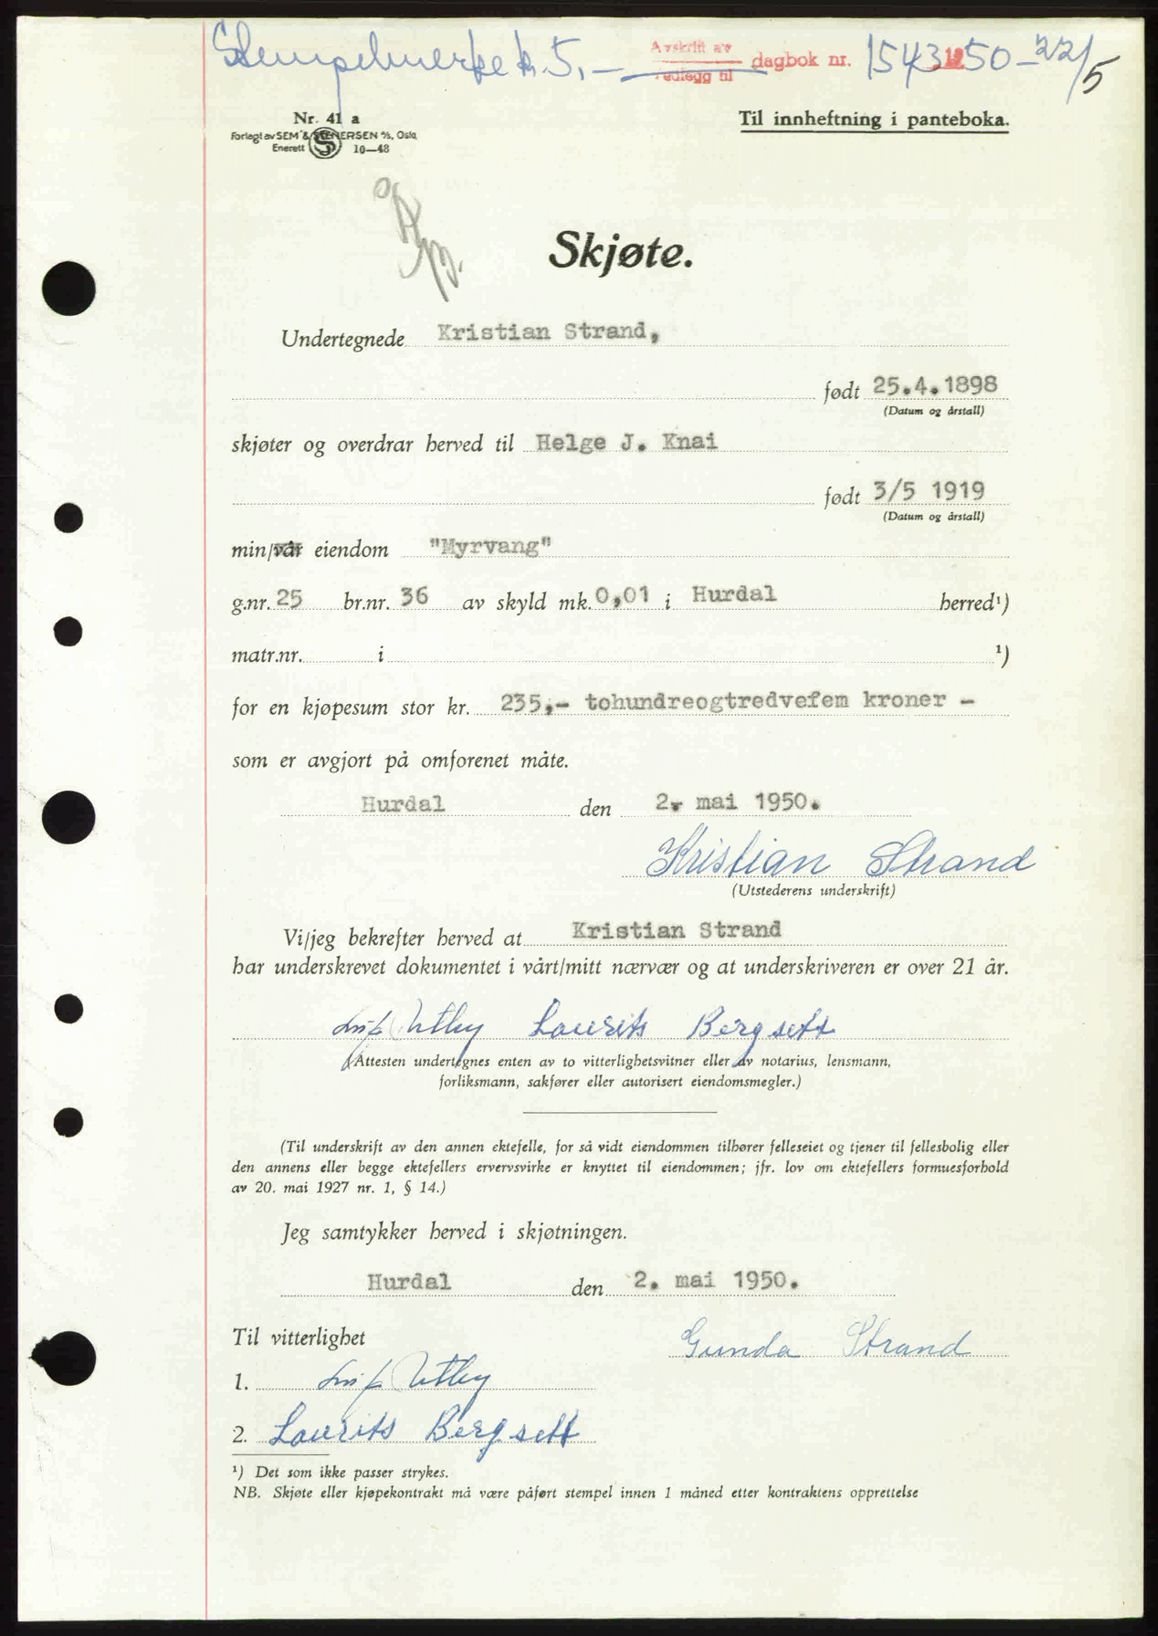 Stempelmerke kr. 5,-
Avskrift av
vedlegg til
dagbok nr. 1543 1950 - 22/5
Nr. 41 a
Til innheftning i panteboka.
Forlagt av SEM & STENERSEN A/S, Oslo
Enerett 10—48
Skjøte.
Undertegnede Kristian Strand,
født 25.4.1898
(Datum og årstall)
skjøter og overdrar herved til Helge J. Knai
født 3/5 1919
(Datum og årstall)
min/vår eiendom "Myrvang"
g.nr. 25 br.nr. 36 av skyld mk. 0,01 i Hurdal herred¹)
matr.nr. i ¹)
for en kjøpesum stor kr. 235,- tohundreogtredvefem kroner -
som er avgjort på omforenet måte.
Hurdal den 2. mai 1950.
Kristian Strand
(Utstederens underskrift)
Vi/jeg bekrefter herved at Kristian Strand
har underskrevet dokumentet i vårt/mitt nærvær og at underskriveren er over 21 år.
Utby Laurits Bergsett
(Attesten undertegnes enten av to vitterlighetsvitner eller av notarius, lensmann,
forliksmann, sakfører eller autorisert eiendomsmegler.)
(Til underskrift av den annen ektefelle, for så vidt eiendommen tilhører felleseiet og tjener til fellesbolig eller
den annens eller begge ektefellers ervervsvirke er knyttet til eiendommen; jfr. lov om ektefellers formuesforhold
av 20. mai 1927 nr. 1, § 14.)
Jeg samtykker herved i skjøtningen.
Hurdal den 2. mai 1950.
Til vitterlighet
Gunda Strand
1. Utby
2. Laurits Bergsett
¹) Det som ikke passer strykes.
NB. Skjøte eller kjøpekontrakt må være påført stempel innen 1 måned etter kontraktens opprettelse